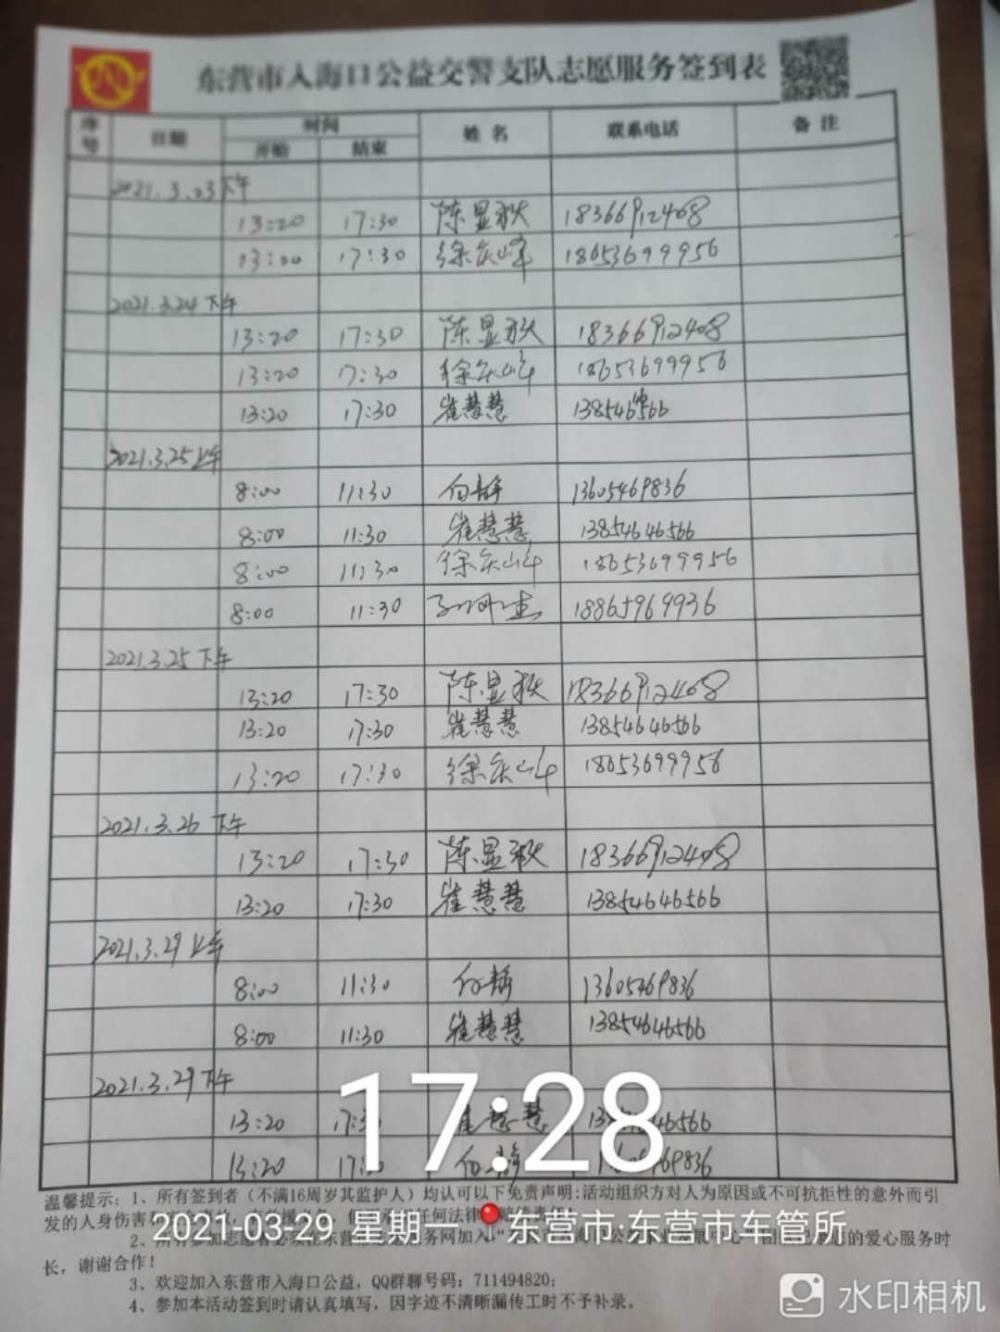 东营市入海口公益交警支队志愿服务签到表
序号 日期 时间 姓名 联系电话 备注
开始 结束
2021.3.03下午
13:20 17:30 陈显秋 18366912408
13:20 17:30 徐庆峰 18653699956
2021.3.24下午
13:20 17:30 陈显秋 18366912408
13:20 17:30 徐庆峰 18653699956
13:20 17:30 崔慧慧
2021.3.25上午
8:00 11:30 13605469836
8:00 11:30 崔慧慧 13854646566
8:00 11:30 徐庆峰 18653699956
8:00 11:30 18865969936
2021.3.25下午
13:20 17:30 陈显秋 18366912408
13:20 17:30 崔慧慧 13854646566
13:20 17:30 徐庆峰 18653699956
2021.3.26下午
13:20 17:30 陈显秋 18366912408
13:20 17:30 崔慧慧 13854646566
2021.3.29上午
8:00 11:30 13605469836
8:00 11:30 崔慧慧 13854646566
2021.3.29下午
13:20 崔慧慧
13:20
17:28
温馨提示:1、所有签到者(不满16周岁其监护人)均认可以下免责声明:活动组织方对人为原因或不可抗拒性的意外而引
发的人身伤害
2021-03-29 星期一 东营市·东营市车管所
的爱心服务时
长,谢谢合作!
3、欢迎加入东营市入海口公益,QQ群聊号码:711494820;
4、参加本活动签到时请认真填写,因字迹不清晰漏传工时不予补录。
水印相机